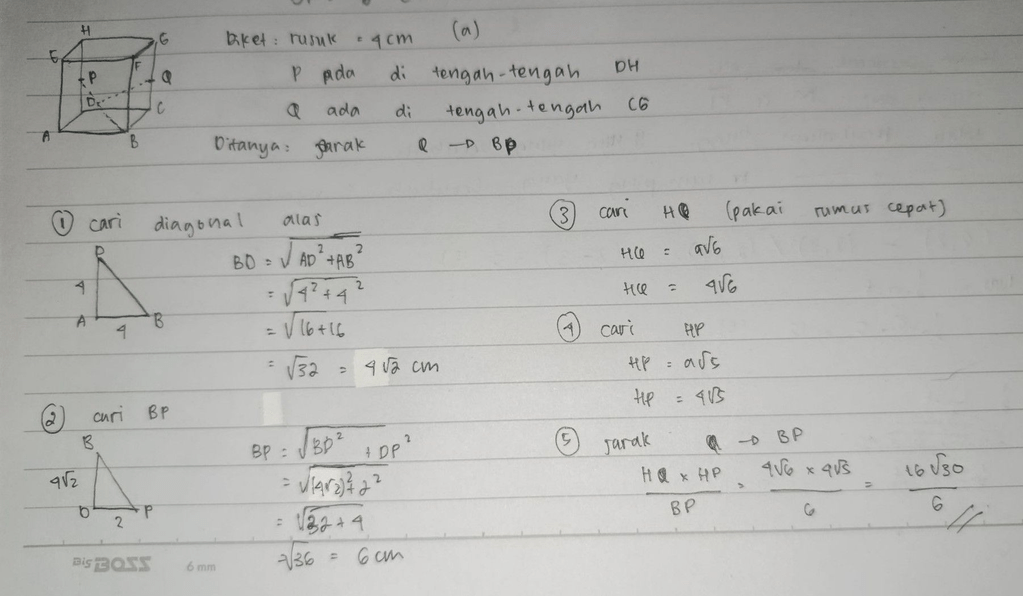 H
G
E
F
P
Q
D
C
A
B
Diket : rusuk = 4 cm (a)
P ada di tengah-tengah DH
Q ada di tengah-tengah CG
Ditanya : jarak Q → BP
① cari diagonal alas
D
4
A
4
B
BD = √AD² + AB²
= √4² + 4²
= √16 + 16
= √32 = 4√2 cm
② cari BP
B
4√2
D
2
P
BP = √BD² + DP²
= √(4√2)² + 2²
= √32 + 4
= √36 = 6 cm
③ cari HQ (pakai rumus cepat)
HQ = a√6
HQ = 4√6
④ cari HP
HP = a√5
HP = 4√5
⑤ jarak Q → BP
HQ × HP / BP = 4√6 × 4√5 / 6 = 16√30 / 6 //
Big BOSS 6 mm